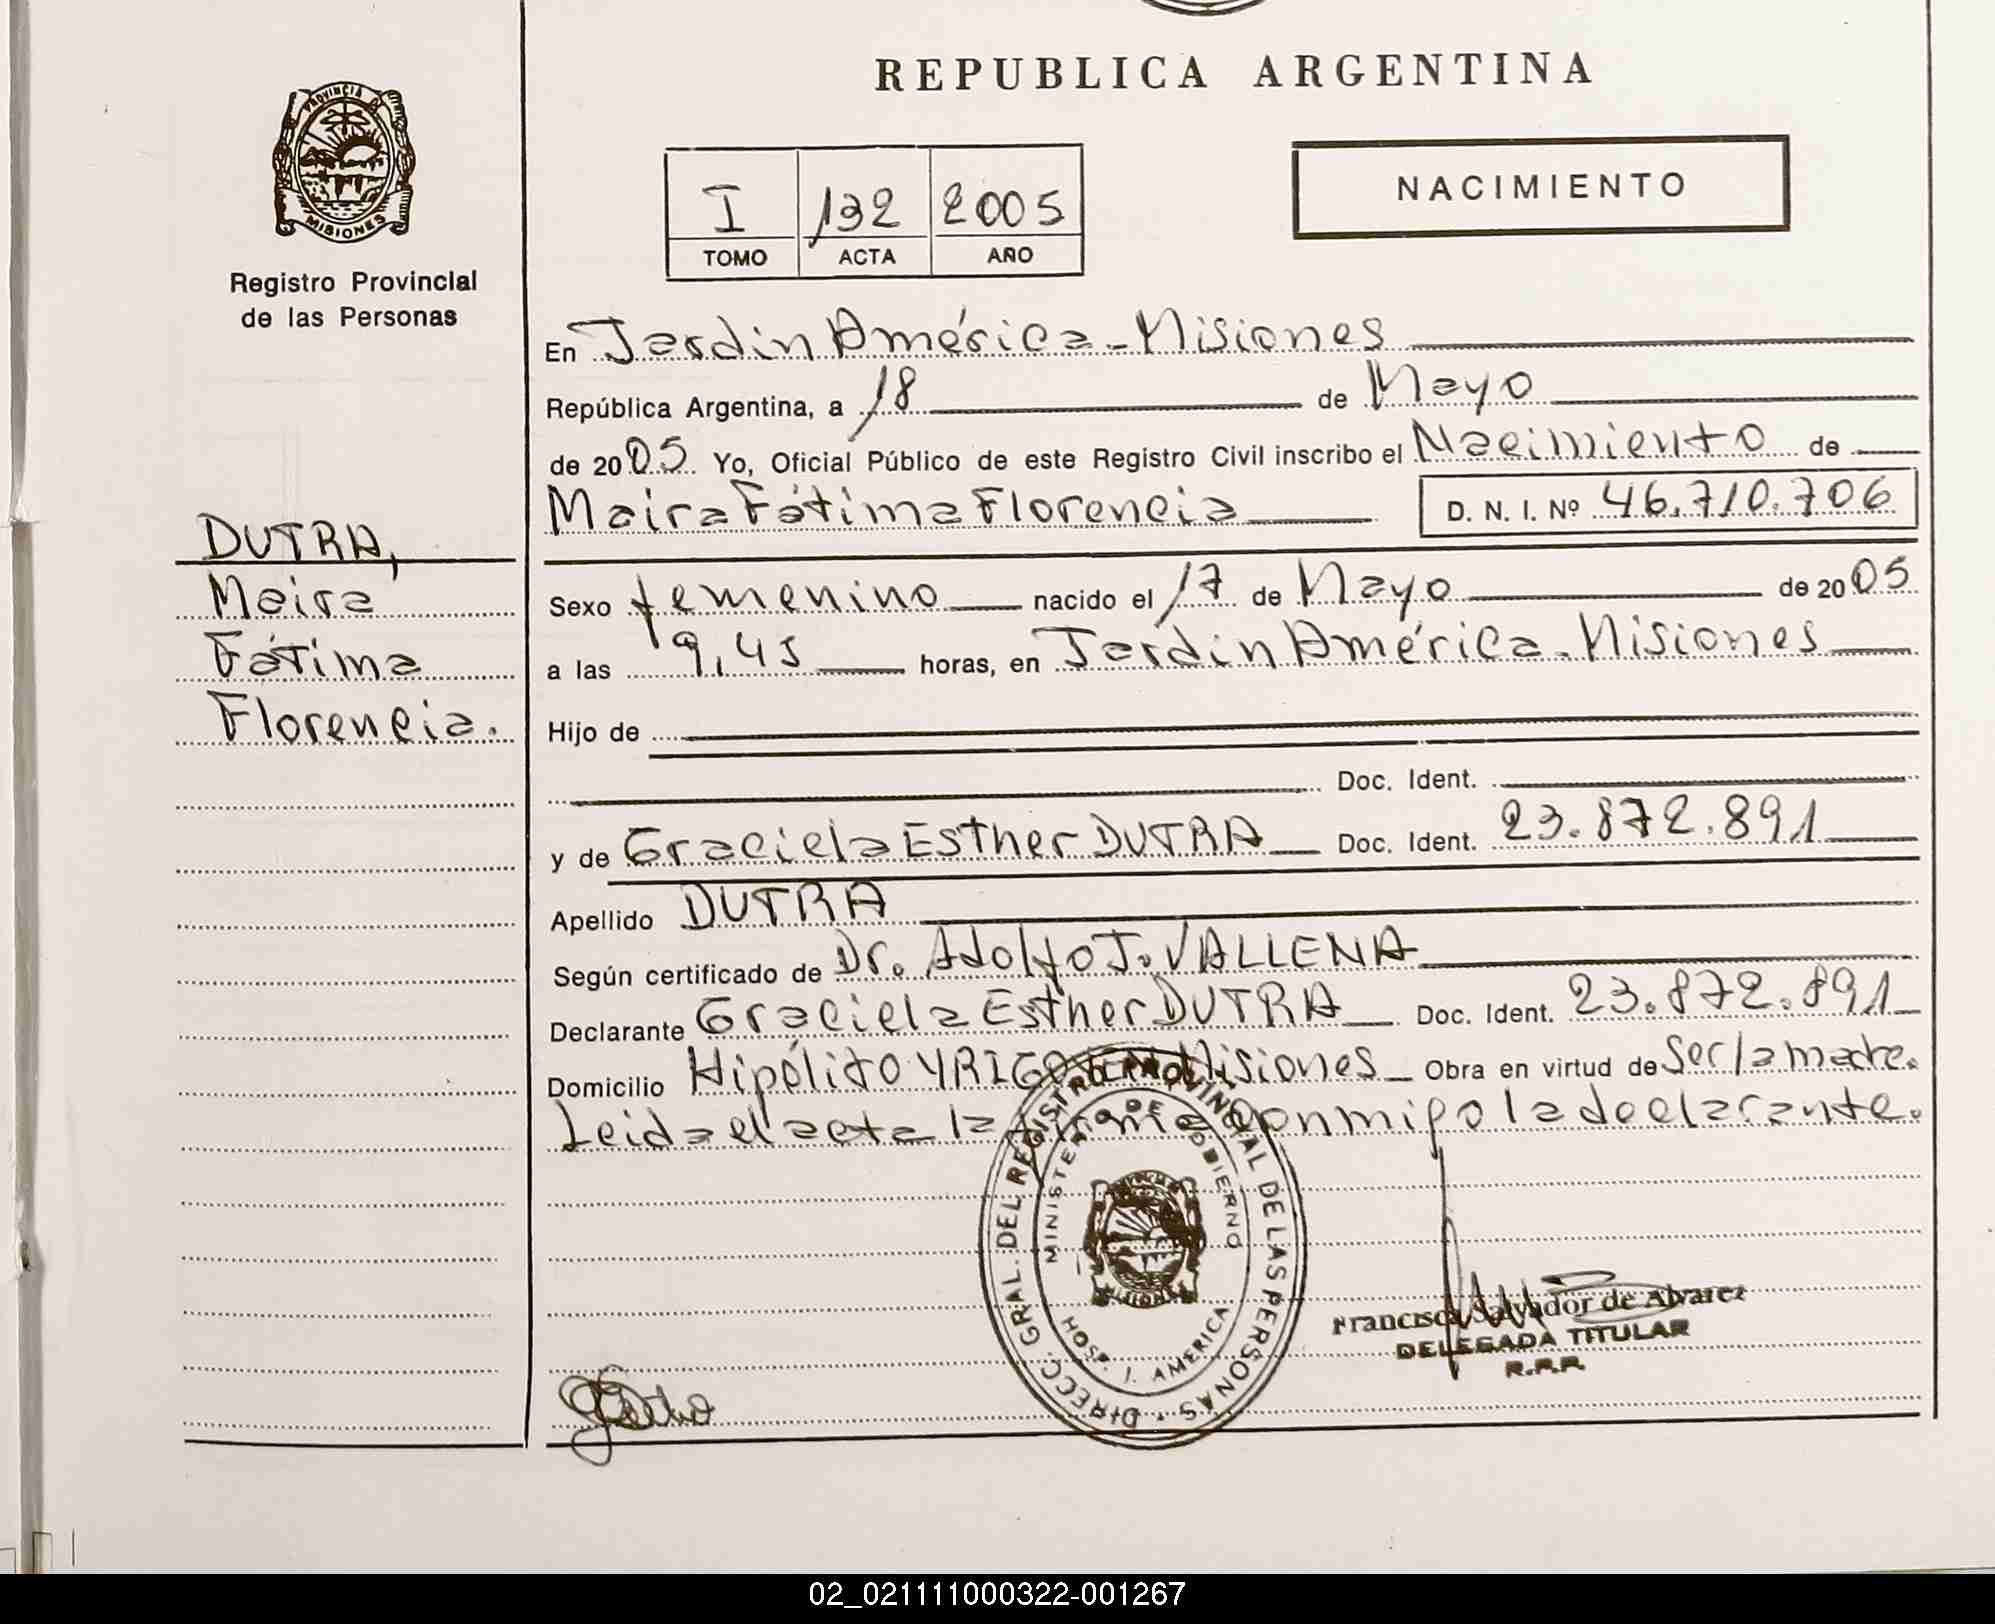 REPUBLICA ARGENTINA
PROVINCIA D
MISIONES
Registro Provincial
de las Personas
I 132 2005
TOMO ACTA AÑO
NACIMIENTO
En Jardin América - Misiones
República Argentina, a 18 de Mayo
de 2005 Yo, Oficial Público de este Registro Civil inscribo el Nacimiento de
Maira Fátima Florencia D. N. I. Nº 46.710.706
DUTRA,
Maira
Fátima
Florencia.
Sexo femenino nacido el 17 de Mayo de 2005
a las 9,45 horas, en Jardin América - Misiones
Hijo de
Doc. Ident.
y de Graciela Esther DUTRA Doc. Ident. 23.872.891
Apellido DUTRA
Según certificado de Dr. Adolfo J. VALLENA
Declarante Graciela Esther DUTRA Doc. Ident. 23.872.891
Domicilio Hipólito Misiones Obra en virtud de Ser la madre.
Leida el acta la firma conmigo la declarante.
DIRECC. GRAL. DEL REGISTRO PROVINCIAL DE LAS PERSONAS
MINISTERIO DE GOBIERNO
MISIONES
HOSP. J. AMERICA
Francisca Salvador de Alvarez
DELEGADA TITULAR
R.P.P.
02_021111000322-001267